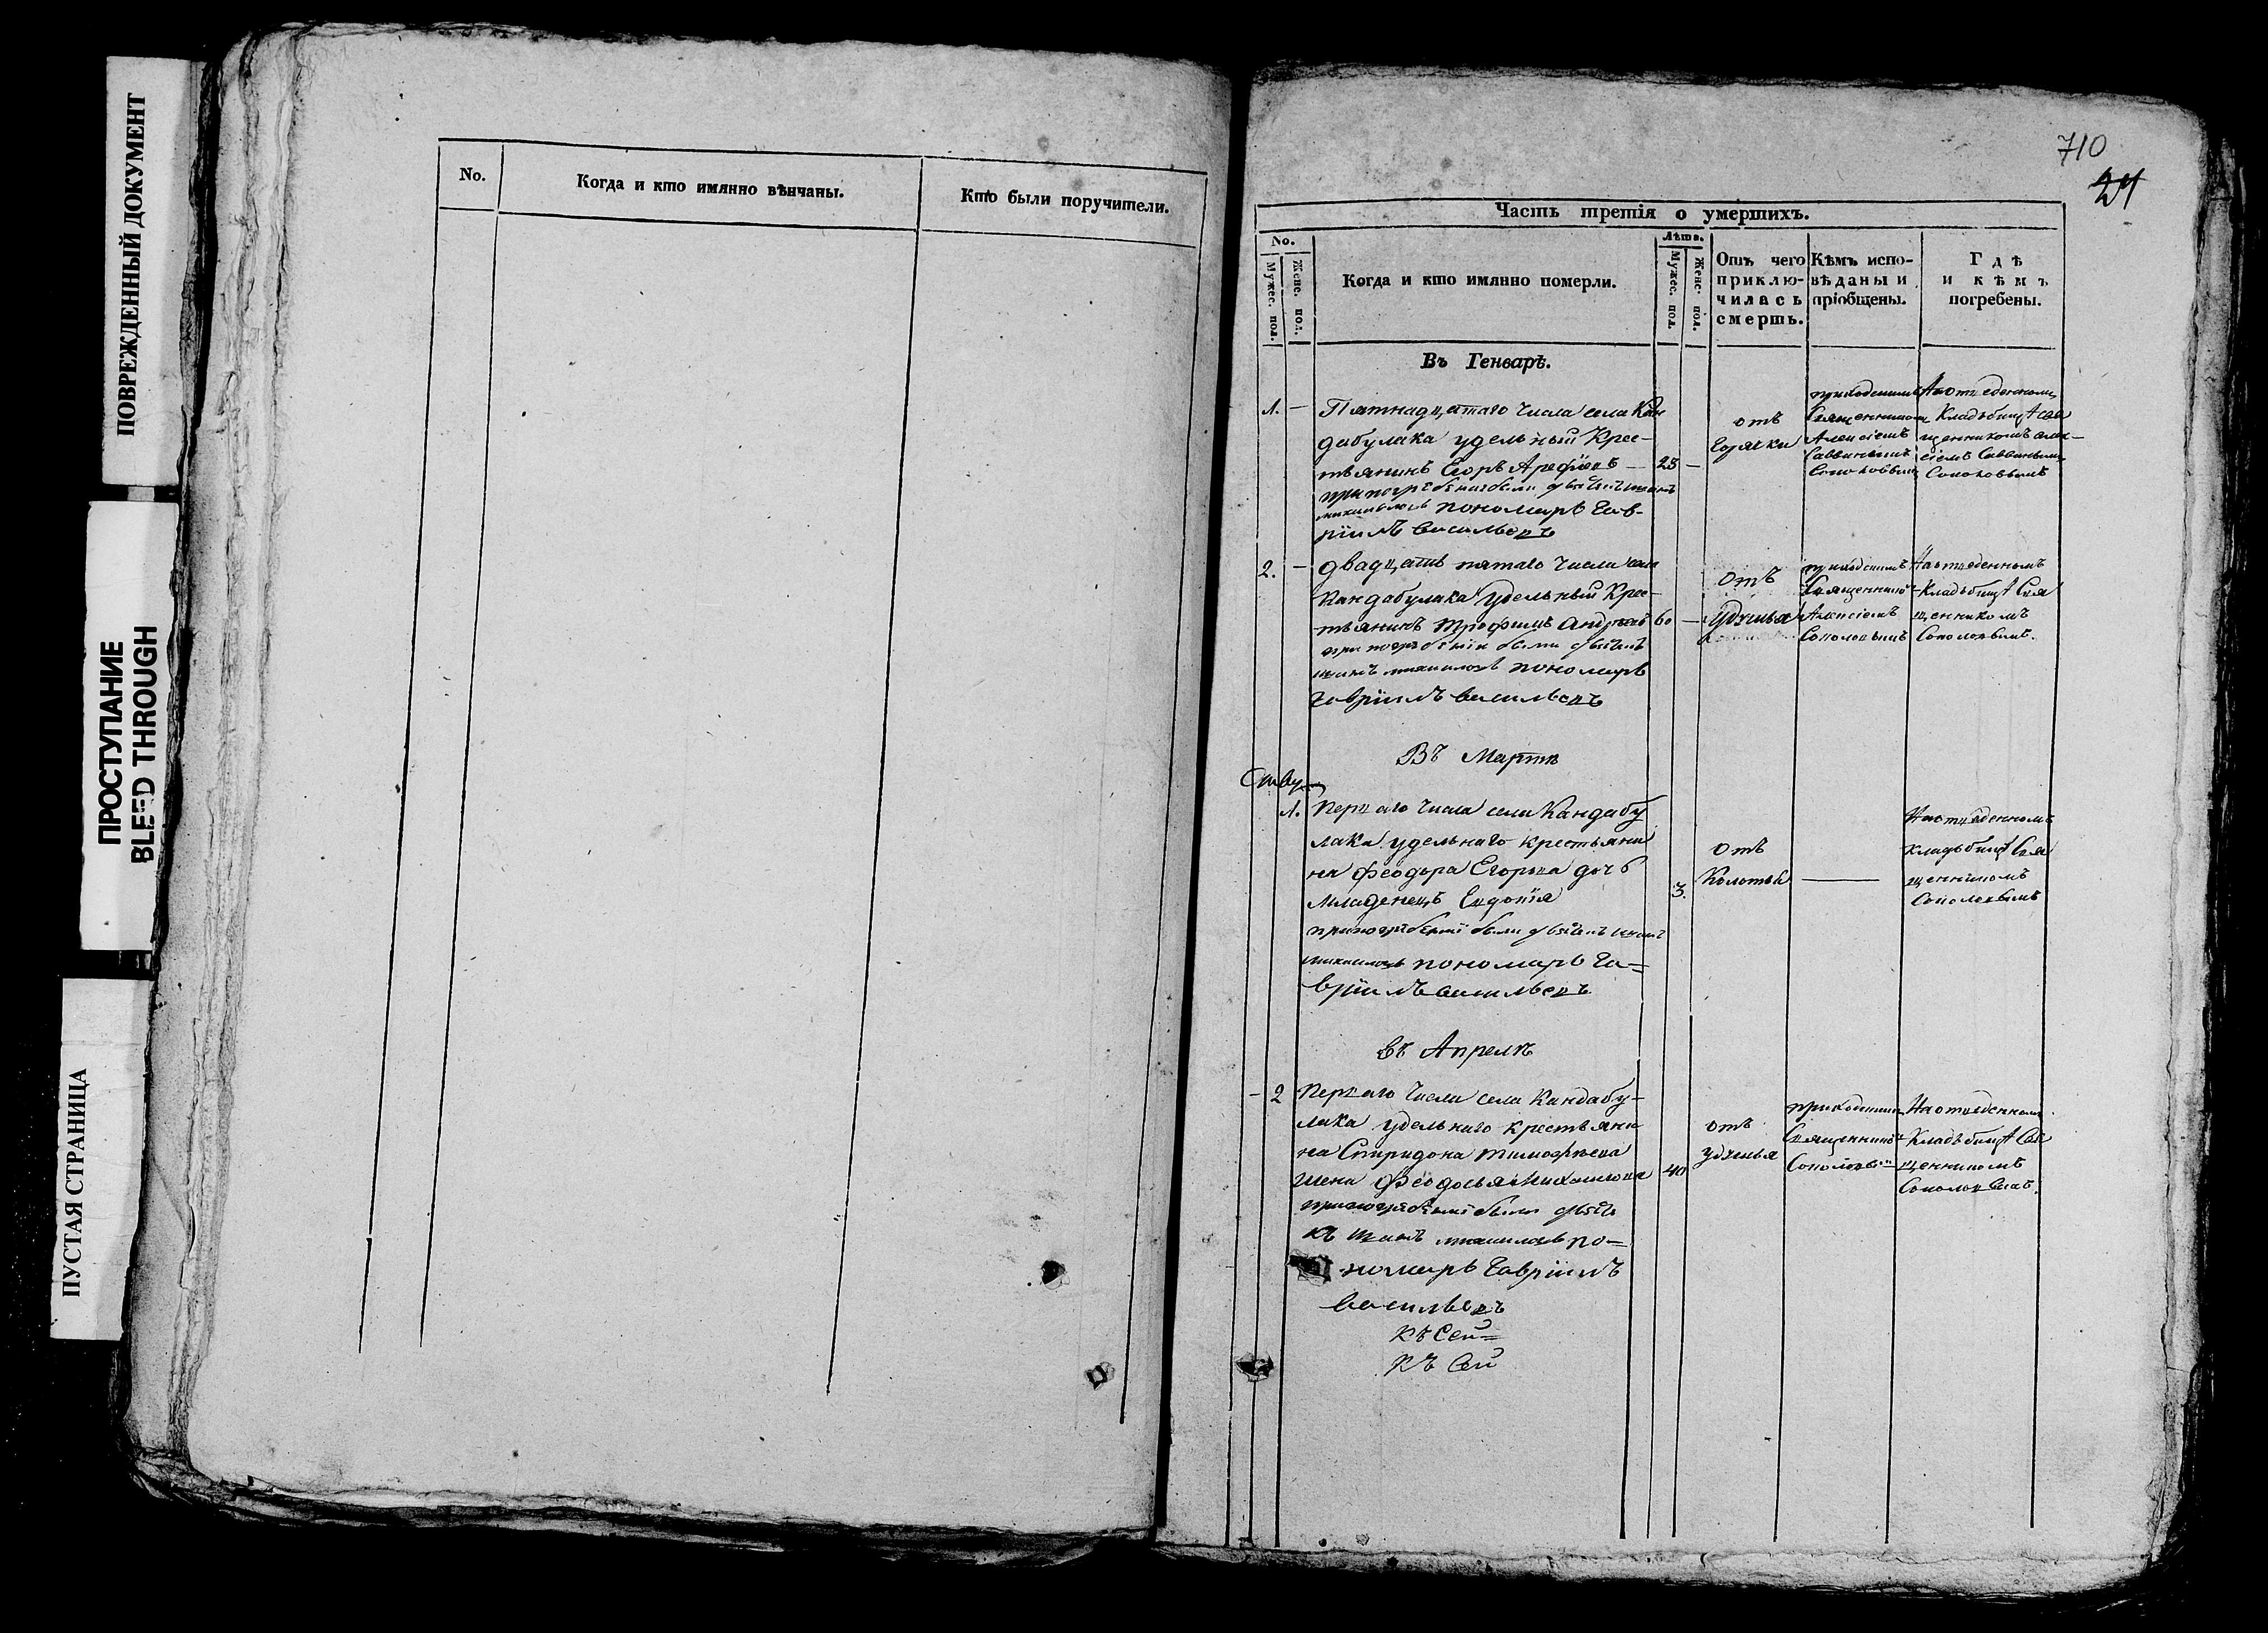 ПОВРЕЖДЕННЫЙ ДОКУМЕНТ
ПРОСТУПАНИЕ
BLEED THROUGH
ПУСТАЯ СТРАНИЦА
No.
Когда и кто имянно вѣнчаны.
Кто были поручители.
710
Часть третія о умершихъ.
No.
Мужес. пол.
Женс. пол.
Когда и кто имянно померли.
Лѣта.
Мужес. пол.
Женс. пол.
Отъ чего
приклю-
чилась
смерть.
Кѣмъ испо-
вѣданы и
пріобщены.
Гдѣ
и кѣмъ
погребены.
Въ Генварѣ.
1. —
Пятнадцатаго числа села Кан
дабулака удельный Крес-
тьянинъ Егоръ Арефіевъ — 25 —
при погребеніи были
пономарь Гав-
ріилъ Васильевъ
отъ
Горячки
приходскимъ
Священникомъ
Алексіемъ
Саввинымъ
Соколовымъ
На отведенномъ
Кладбищѣ Свя
щенникомъ Алек-
сіемъ Саввинымъ
Соколовымъ
2. —
двадцать пятаго числа села
Кандабулака Удельный Крес-
тьянинъ Трофимъ Андреевъ 60 —
при погребеніи были
пономарь
Гавріилъ Васильевъ
отъ
Удушья
приходскимъ
Священникомъ
Алексіемъ
Соколовымъ
На отведенномъ
Кладбищѣ Свя
щенникомъ
Соколовымъ.
Въ Мартѣ
1.
Перваго числа села Кандабу
лака удельнаго крестьяни
на Феодора Егорова дочь
Младенецъ Евдокія
3.
при погребеніи были
пономарь Га=
вріилъ Васильевъ
отъ
Колотья
На отведенномъ
кладбищѣ Свя
щенникомъ
Соколовымъ
въ Апрелѣ
— 2
Перваго числа села Кандабу-
лака удельнаго крестьяни
на Спиридона Тимофѣева
жена Феодосья Михайлова 40
при погребеніи были
по=
номарь Гавріилъ
Васильевъ
Къ Сей=
Къ Сей
отъ
удушья
приходскимъ
Священникомъ
Соколовымъ
На отведенномъ
Кладбищѣ Свя
щенникомъ
Соколовымъ.